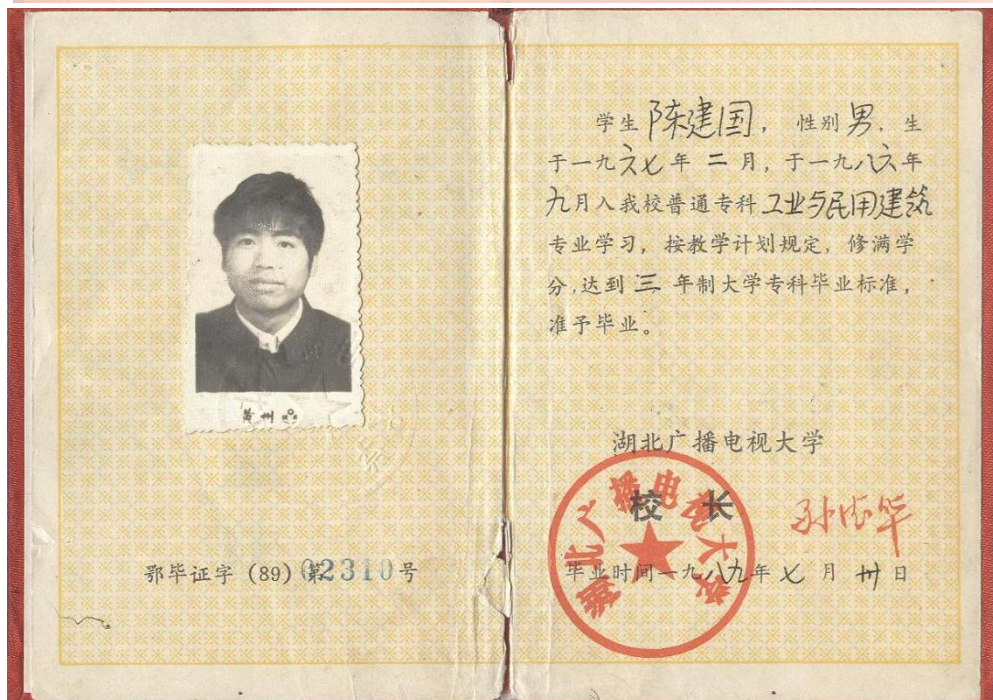 黄州
鄂毕证字（89）第02310号
学生陈建国，性别男，生
于一九六七年二月，于一九八六年
九月入我校普通专科工业与民用建筑
专业学习，按教学计划规定，修满学
分，达到三年制大学专科毕业标准，
准予毕业。
湖北广播电视大学
校长
湖北广播电视大学
毕业时间一九八九年七月卅日